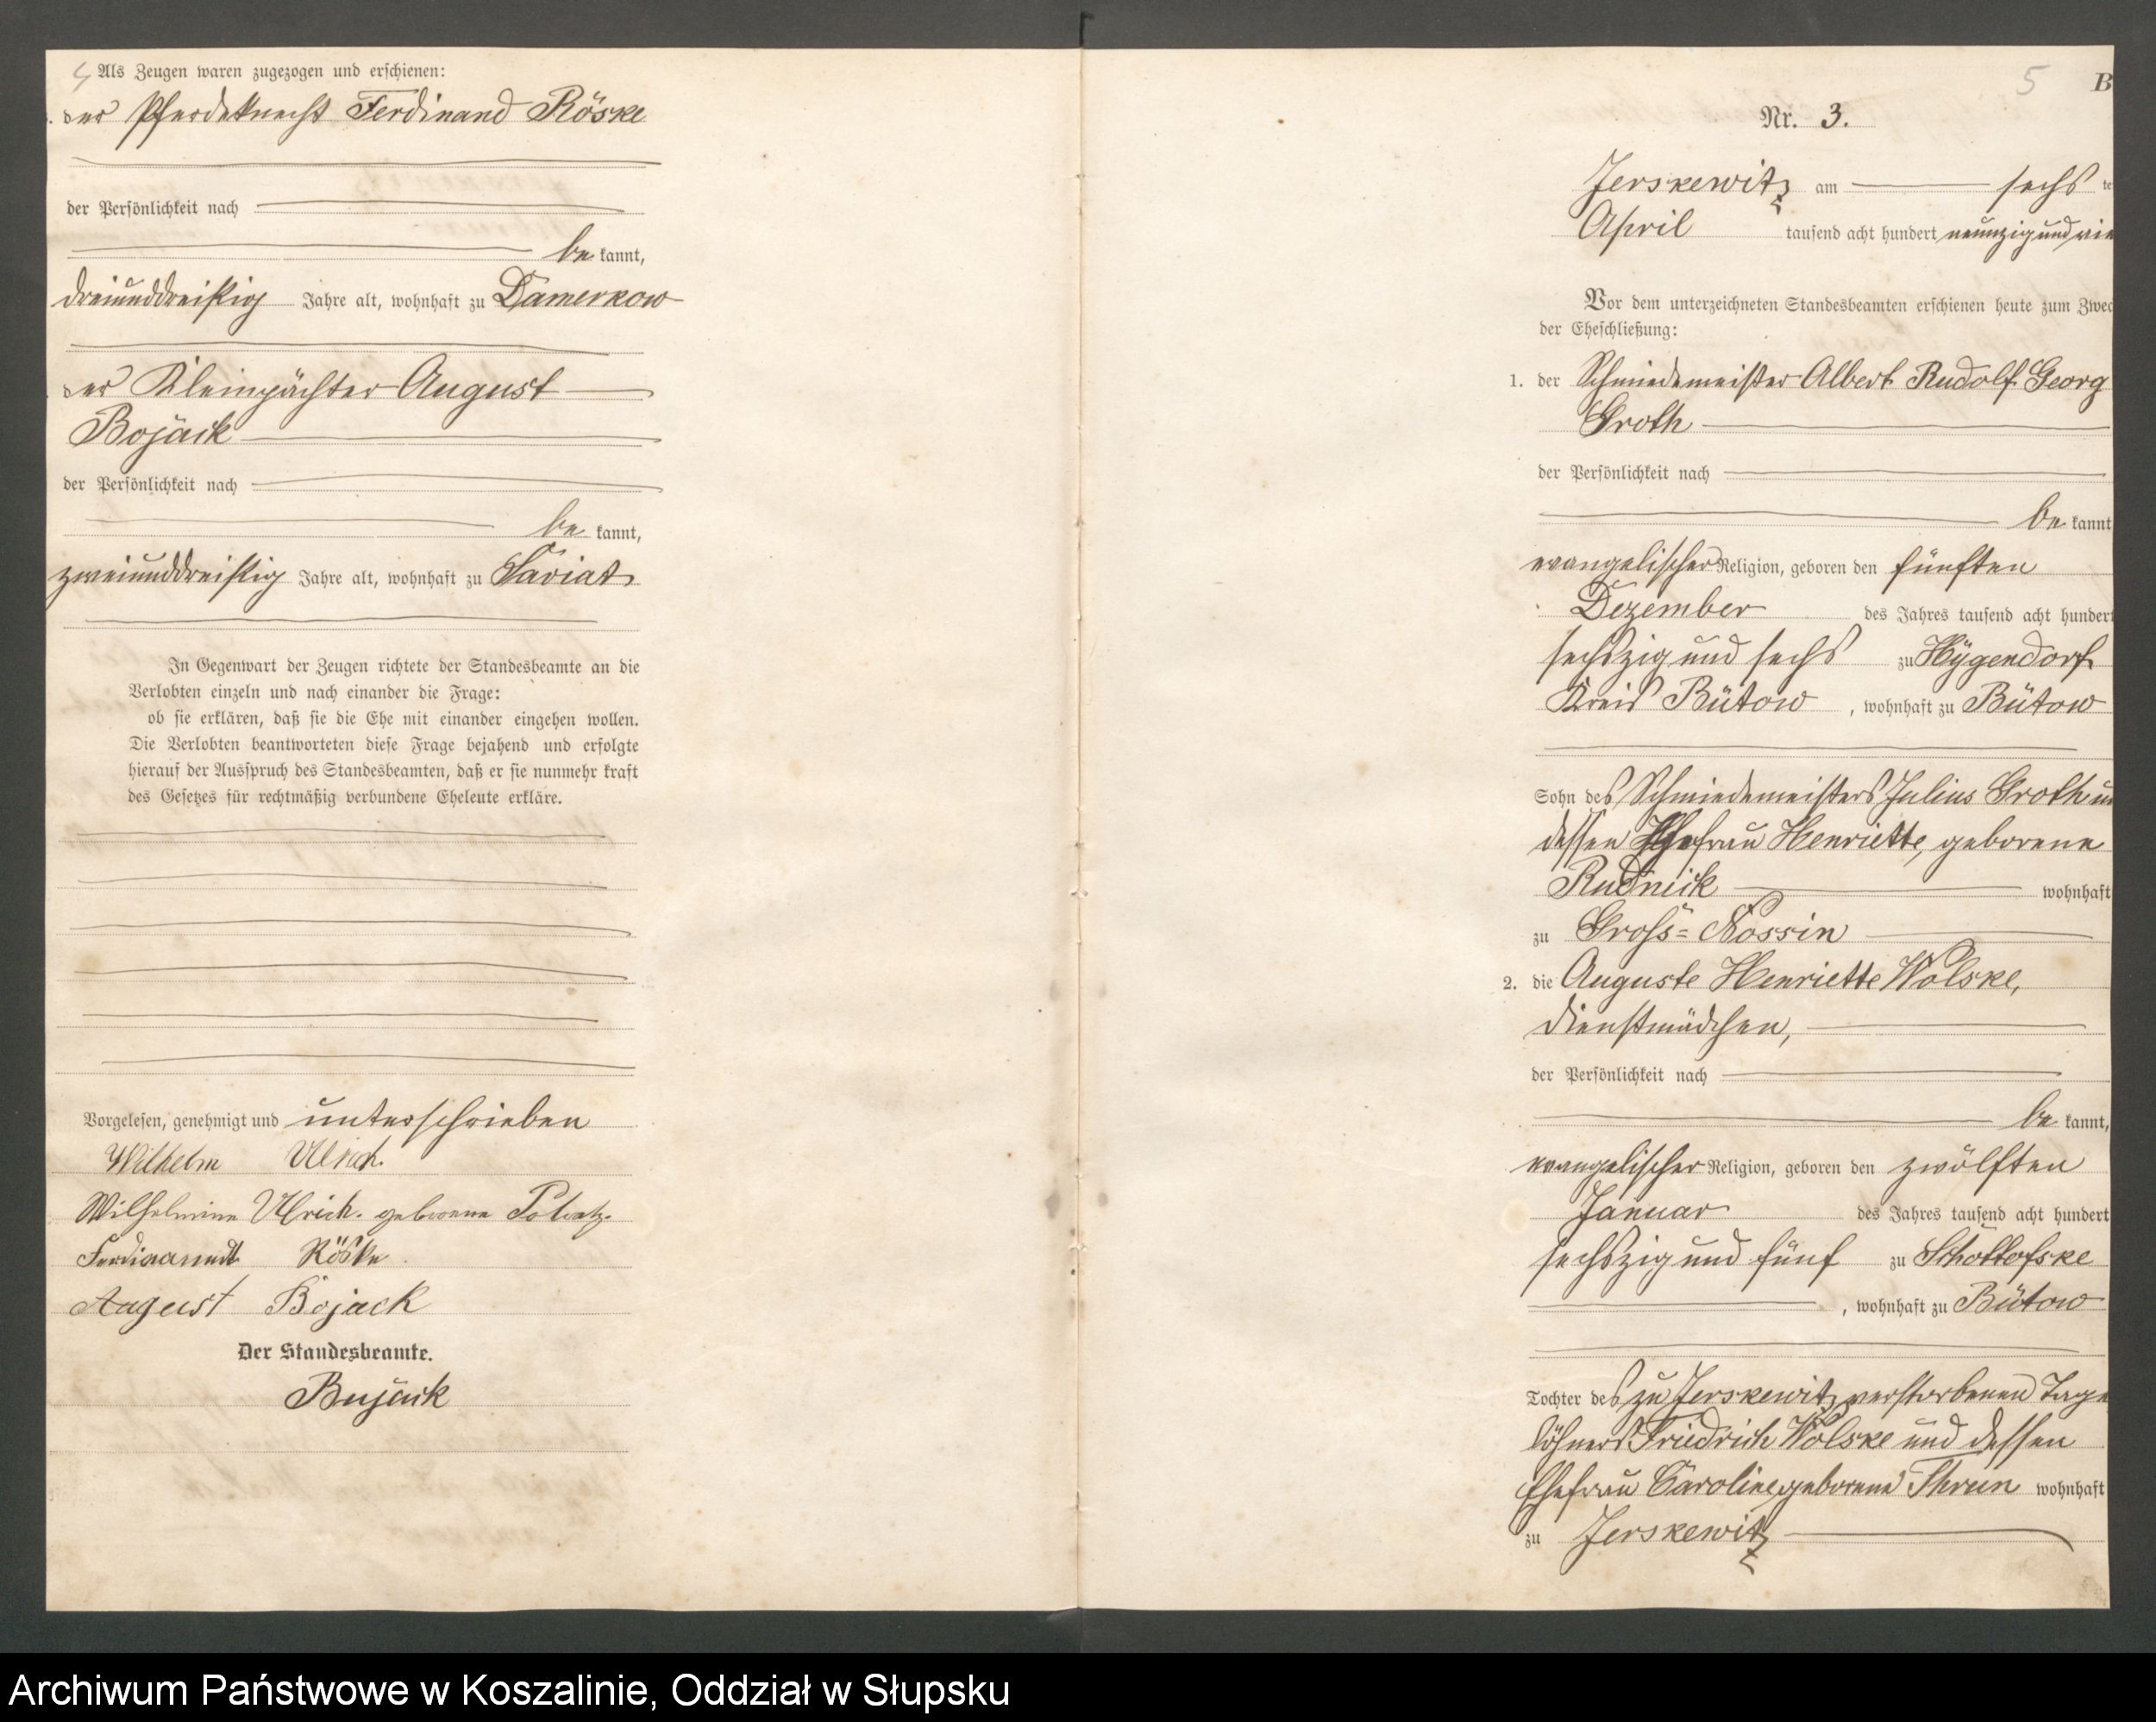 4
Als Zeugen waren zugezogen und erschienen:
der Pferdeknecht Ferdinand Röske
der Persönlichkeit nach
be kannt,
dreiunddreißig Jahre alt, wohnhaft zu Damerkow
der Kleinpächter August
Bojack
der Persönlichkeit nach
be kannt,
zweiunddreißig Jahre alt, wohnhaft zu
In Gegenwart der Zeugen richtete der Standesbeamte an die
Verlobten einzeln und nach einander die Frage:
ob sie erklären, daß sie die Ehe mit einander eingehen wollen.
Die Verlobten beantworteten diese Frage bejahend und erfolgte
hierauf der Ausspruch des Standesbeamten, daß er sie nunmehr kraft
des Gesetzes für rechtmäßig verbundene Eheleute erkläre.
Vorgelesen, genehmigt und unterschrieben
Wilhelm Ulrich.
Wilhelmine Ulrich. geborene
Ferdinandt Röske
August Bojack
Der Standesbeamte.
Bujack
5
B
Nr. 3.
Jerskewitz am sechs te
April tausend acht hundert neunzig und vie
Vor dem unterzeichneten Standesbeamten erschienen heute zum Zwec
der Eheschließung:
1. der Schmiedemeister Albert Rudolf Georg
Groth
der Persönlichkeit nach
be kannt
evangelischer Religion, geboren den fünften
Dezember des Jahres tausend acht hundert
sechszig und sechs zu Hygendorf
Kreis Bütow, wohnhaft zu Bütow
Sohn des Schmiedemeisters Julius Groth un
dessen Ehefrau Henriette, geborene
Rudnick wohnhaft
zu Groß-Nossin
2. die Auguste Henriette Wolske,
Dienstmädchen,
der Persönlichkeit nach
be kannt,
evangelischer Religion, geboren den zwölften
Januar des Jahres tausend acht hundert
sechszig und fünf zu Schottofske
, wohnhaft zu Bütow
Tochter des zu Jerskewitz verstorbenen Tage
löhners Friedrich Wolske und dessen
Ehefrau Caroline geborene Thrun wohnhaft
zu Jerskewitz
Archiwum Państwowe w Koszalinie, Oddział w Słupsku